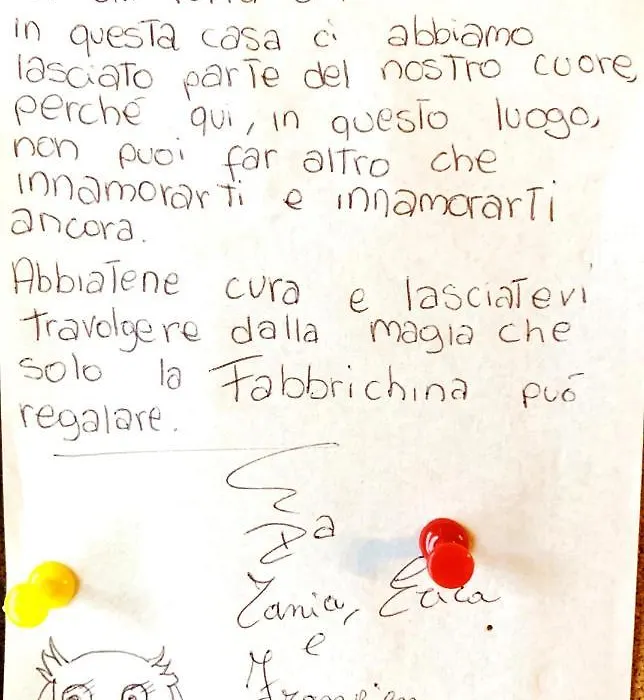 in questa casa ci abbiamo
lasciato parte del nostro cuore,
perché qui, in questo luogo,
non puoi far altro che
innamorarti e innamorarti
ancora.
Abbiatene cura e lasciatevi
travolgere dalla magia che
solo la Fabbrichina può
regalare.
Da
Tania, Erica
e